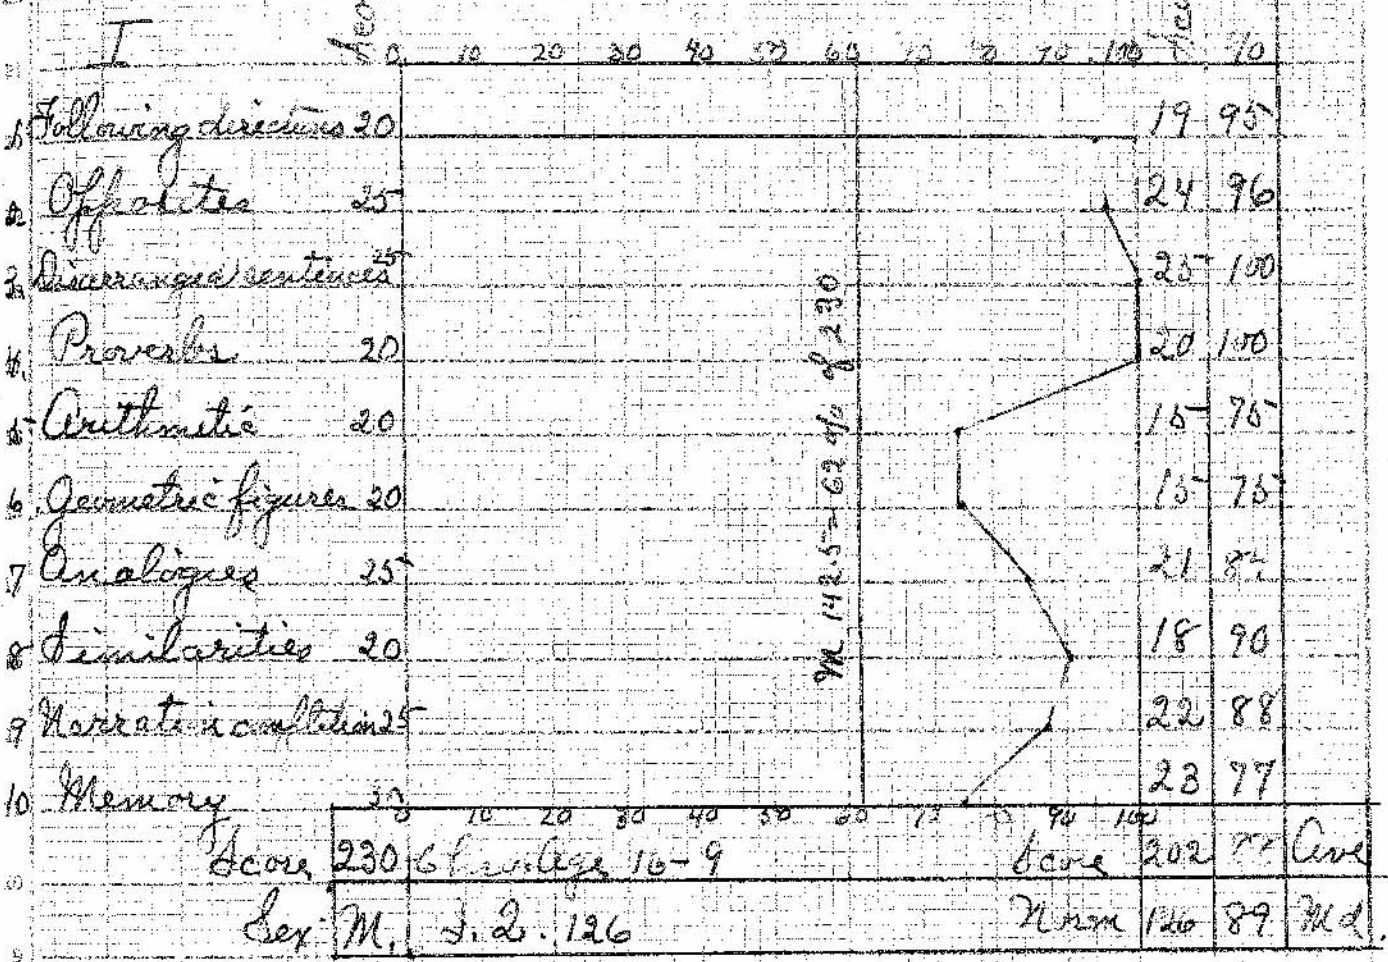 I
0 10 20 30 40 50 60 70 80 90 100 %
1 Following directions 20 19 95
2 Opposites 25 24 96
3 Disarranged sentences 25 25 100
4. Proverbs 20 20 100
5 Arithmetic 20 15 75
6. Geometric figures 20 15 75
7 Analogies 25 21
8 Similarities 20 18 90
9 Narrative completion 25 22 88
10 Memory 23 77
M 142.5 = 62 % of 230
0 10 20 30 40 50 60 90 100
Score 230 Age 16-9 Score 202 Ave
Sex M. I.Q. 126 Norm 126 89 Md.